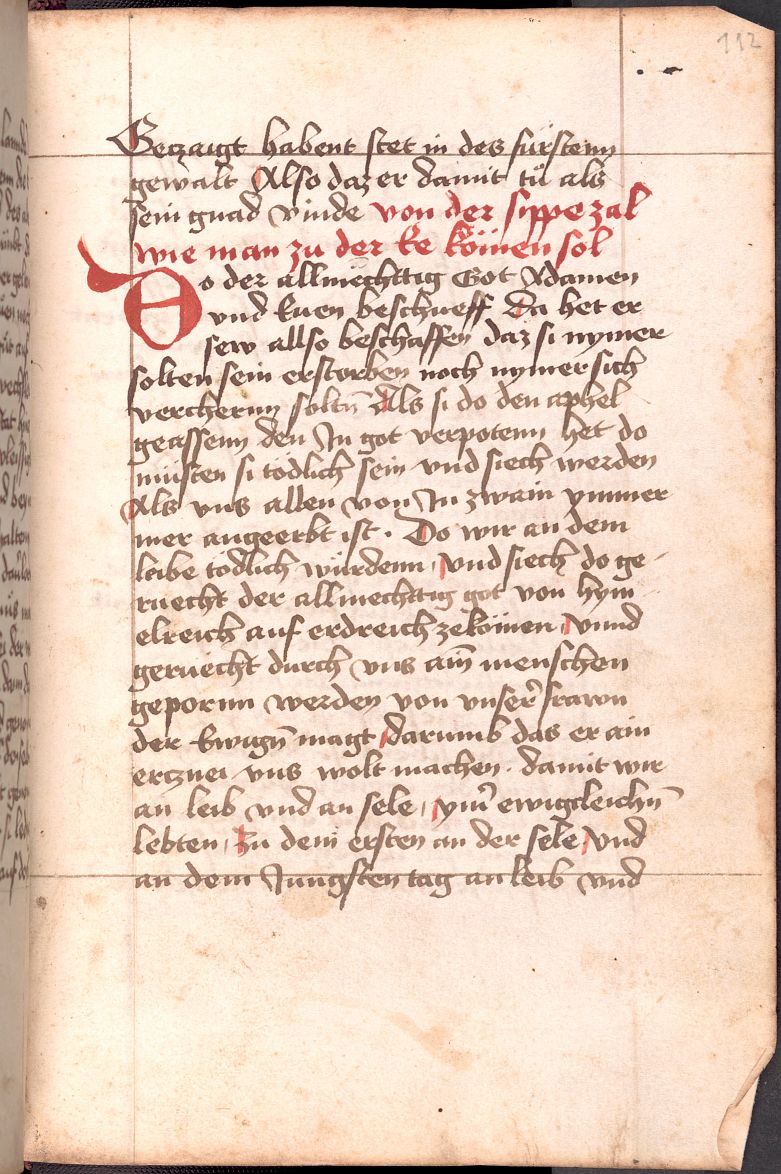 112
Geczaigt habent stet in des fürstenn
gewalt Also daz er damit tü als
sein gnad vinde von der sippezal
wie man zu der Ee kömen sol
Do der allmechttig Got Adamen
vnd Euen beschueff Da het er
sew allso beschaffen daz si nymer
solten sein erstorben noch nymer sich
verchernn solt̄n Als si do den aphel
geassenn den In got verpotenn het do
müsten si tödlich sein vnd siech werden
Als vns allen von In zwain ymmer
mer angeerbt ist. Do wir an dem
leibe tödlich würdenn, vnd siech do ge-
ruecht der allmechttig got von hym-
elreich auf erdreich zekömen, vnnd
geruecht durch vns ain̄ menschen
gepornn werden von vnser̄ frawn
der Ewign̄ magt, darumb das er ain
ercznei vns wolt machen. damit wir
an leib vnd an sele, ym̄ ewigcleichn̄
lebten, zu dem ersten an der sele, vnd
an dem Jungsten tag an leib vnd